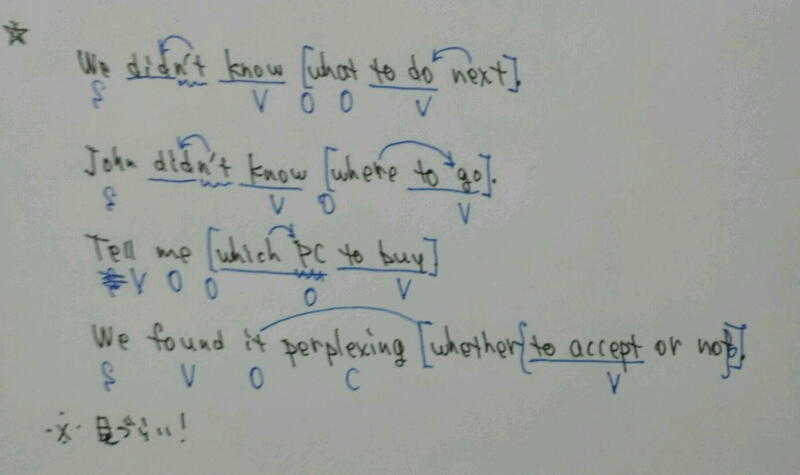 We didn't know [what to do next].
S V O O V
John didn't know [where to go].
S V O V
Tell me [which PC to buy]
V O O O V
We found it perplexing [whether {to accept or not}].
S V O C V